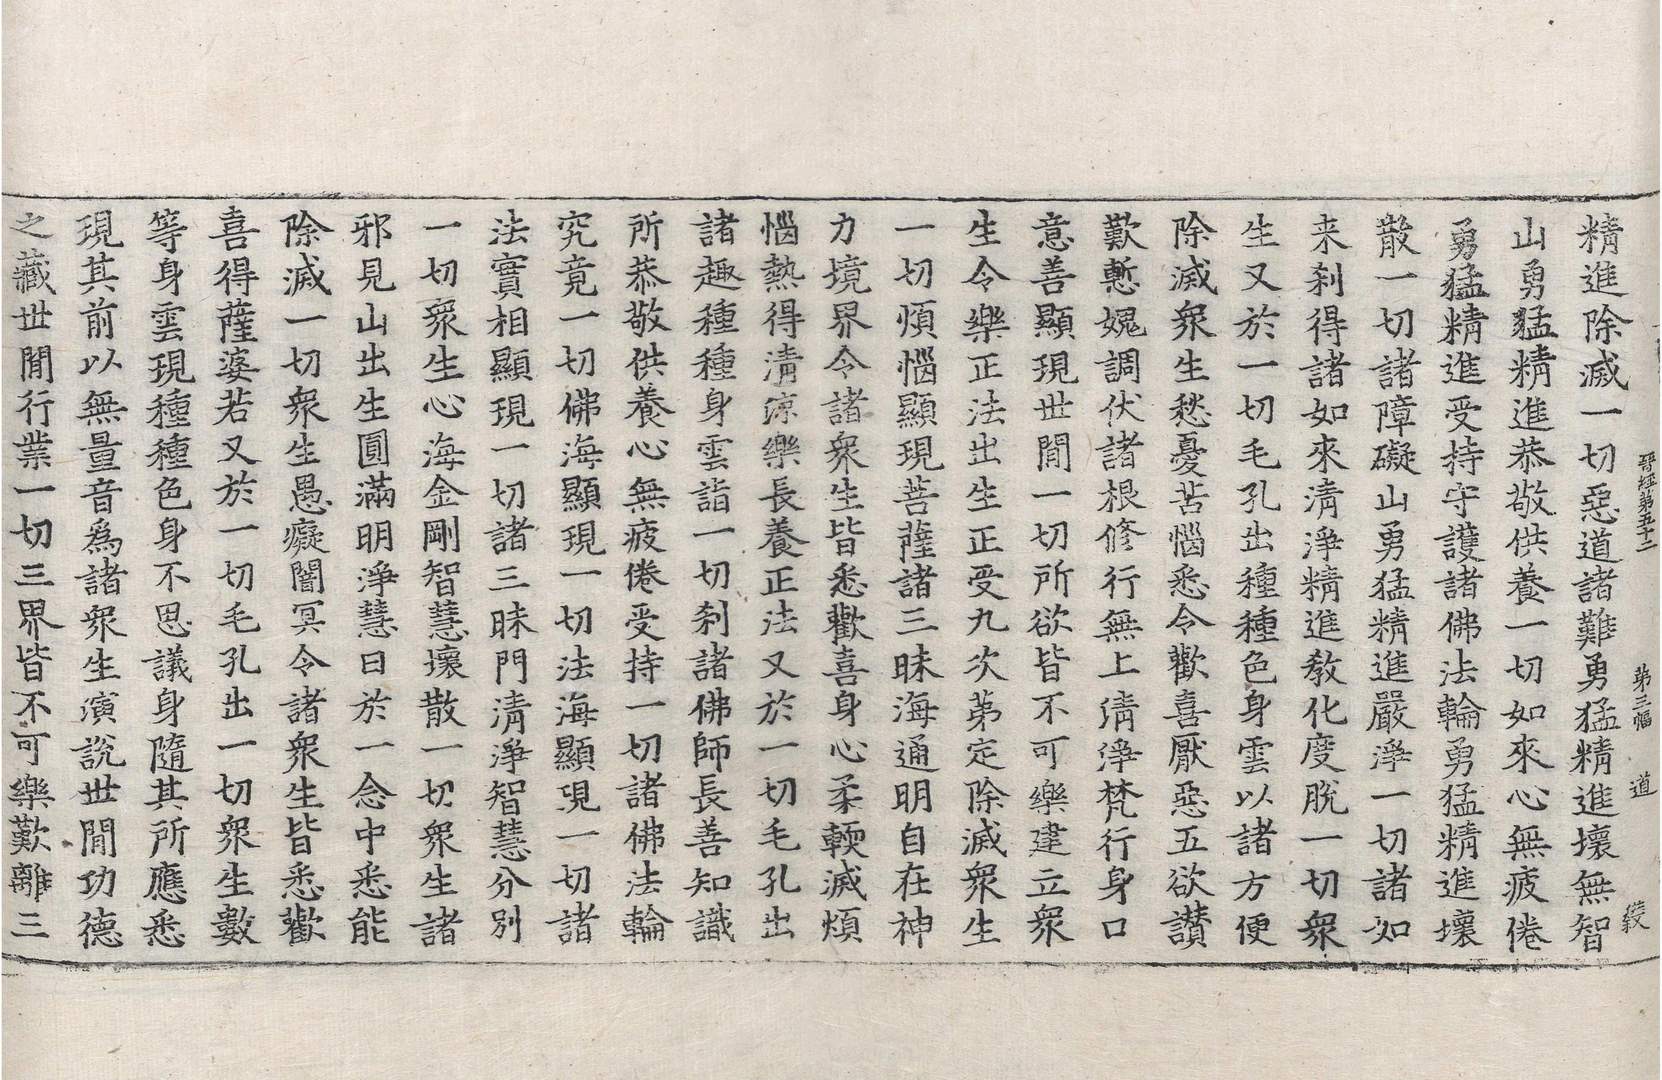 晉經第五十二　第三幅　道
精進除滅一切惡道諸難勇猛精進壞無智
山勇猛精進恭敬供養一切如來心無疲倦
勇猛精進受持守護諸佛法輪勇猛精進壞
散一切諸障礙山勇猛精進嚴淨一切諸如
来刹得諸如來清淨精進教化度脫一切衆
生又於一切毛孔出種種色身雲以諸方便
除滅衆生愁憂苦惱悉令歡喜厭惡五欲讃
歎慙媿調伏諸根修行無上清淨梵行身口
意善顯現世閒一切所欲皆不可樂建立衆
生令樂正法出生正受九次第定除滅衆生
一切煩惱顯現菩薩諸三昧海通明自在神
力境界令諸衆生皆悉歡喜身心柔輭滅煩
惱熱得清涼樂長養正法又於一切毛孔出
諸趣種種身雲詣一切刹諸佛師長善知識
所恭敬供養心無疲倦受持一切諸佛法輪
究竟一切佛海顯現一切法海顯現一切諸
法實相顯現一切諸三昧門清淨智慧分別
一切衆生心海金剛智慧壞散一切衆生諸
邪見山出生圓滿明淨慧日於一念中悉能
除滅一切衆生愚癡闇冥令諸衆生皆悉歡
喜得薩婆若又於一切毛孔出一切衆生數
等身雲現種種色身不思議身隨其所應悉
現其前以無量音爲諸衆生演說世閒功德
之藏世閒行業一切三界皆不可樂歎離三